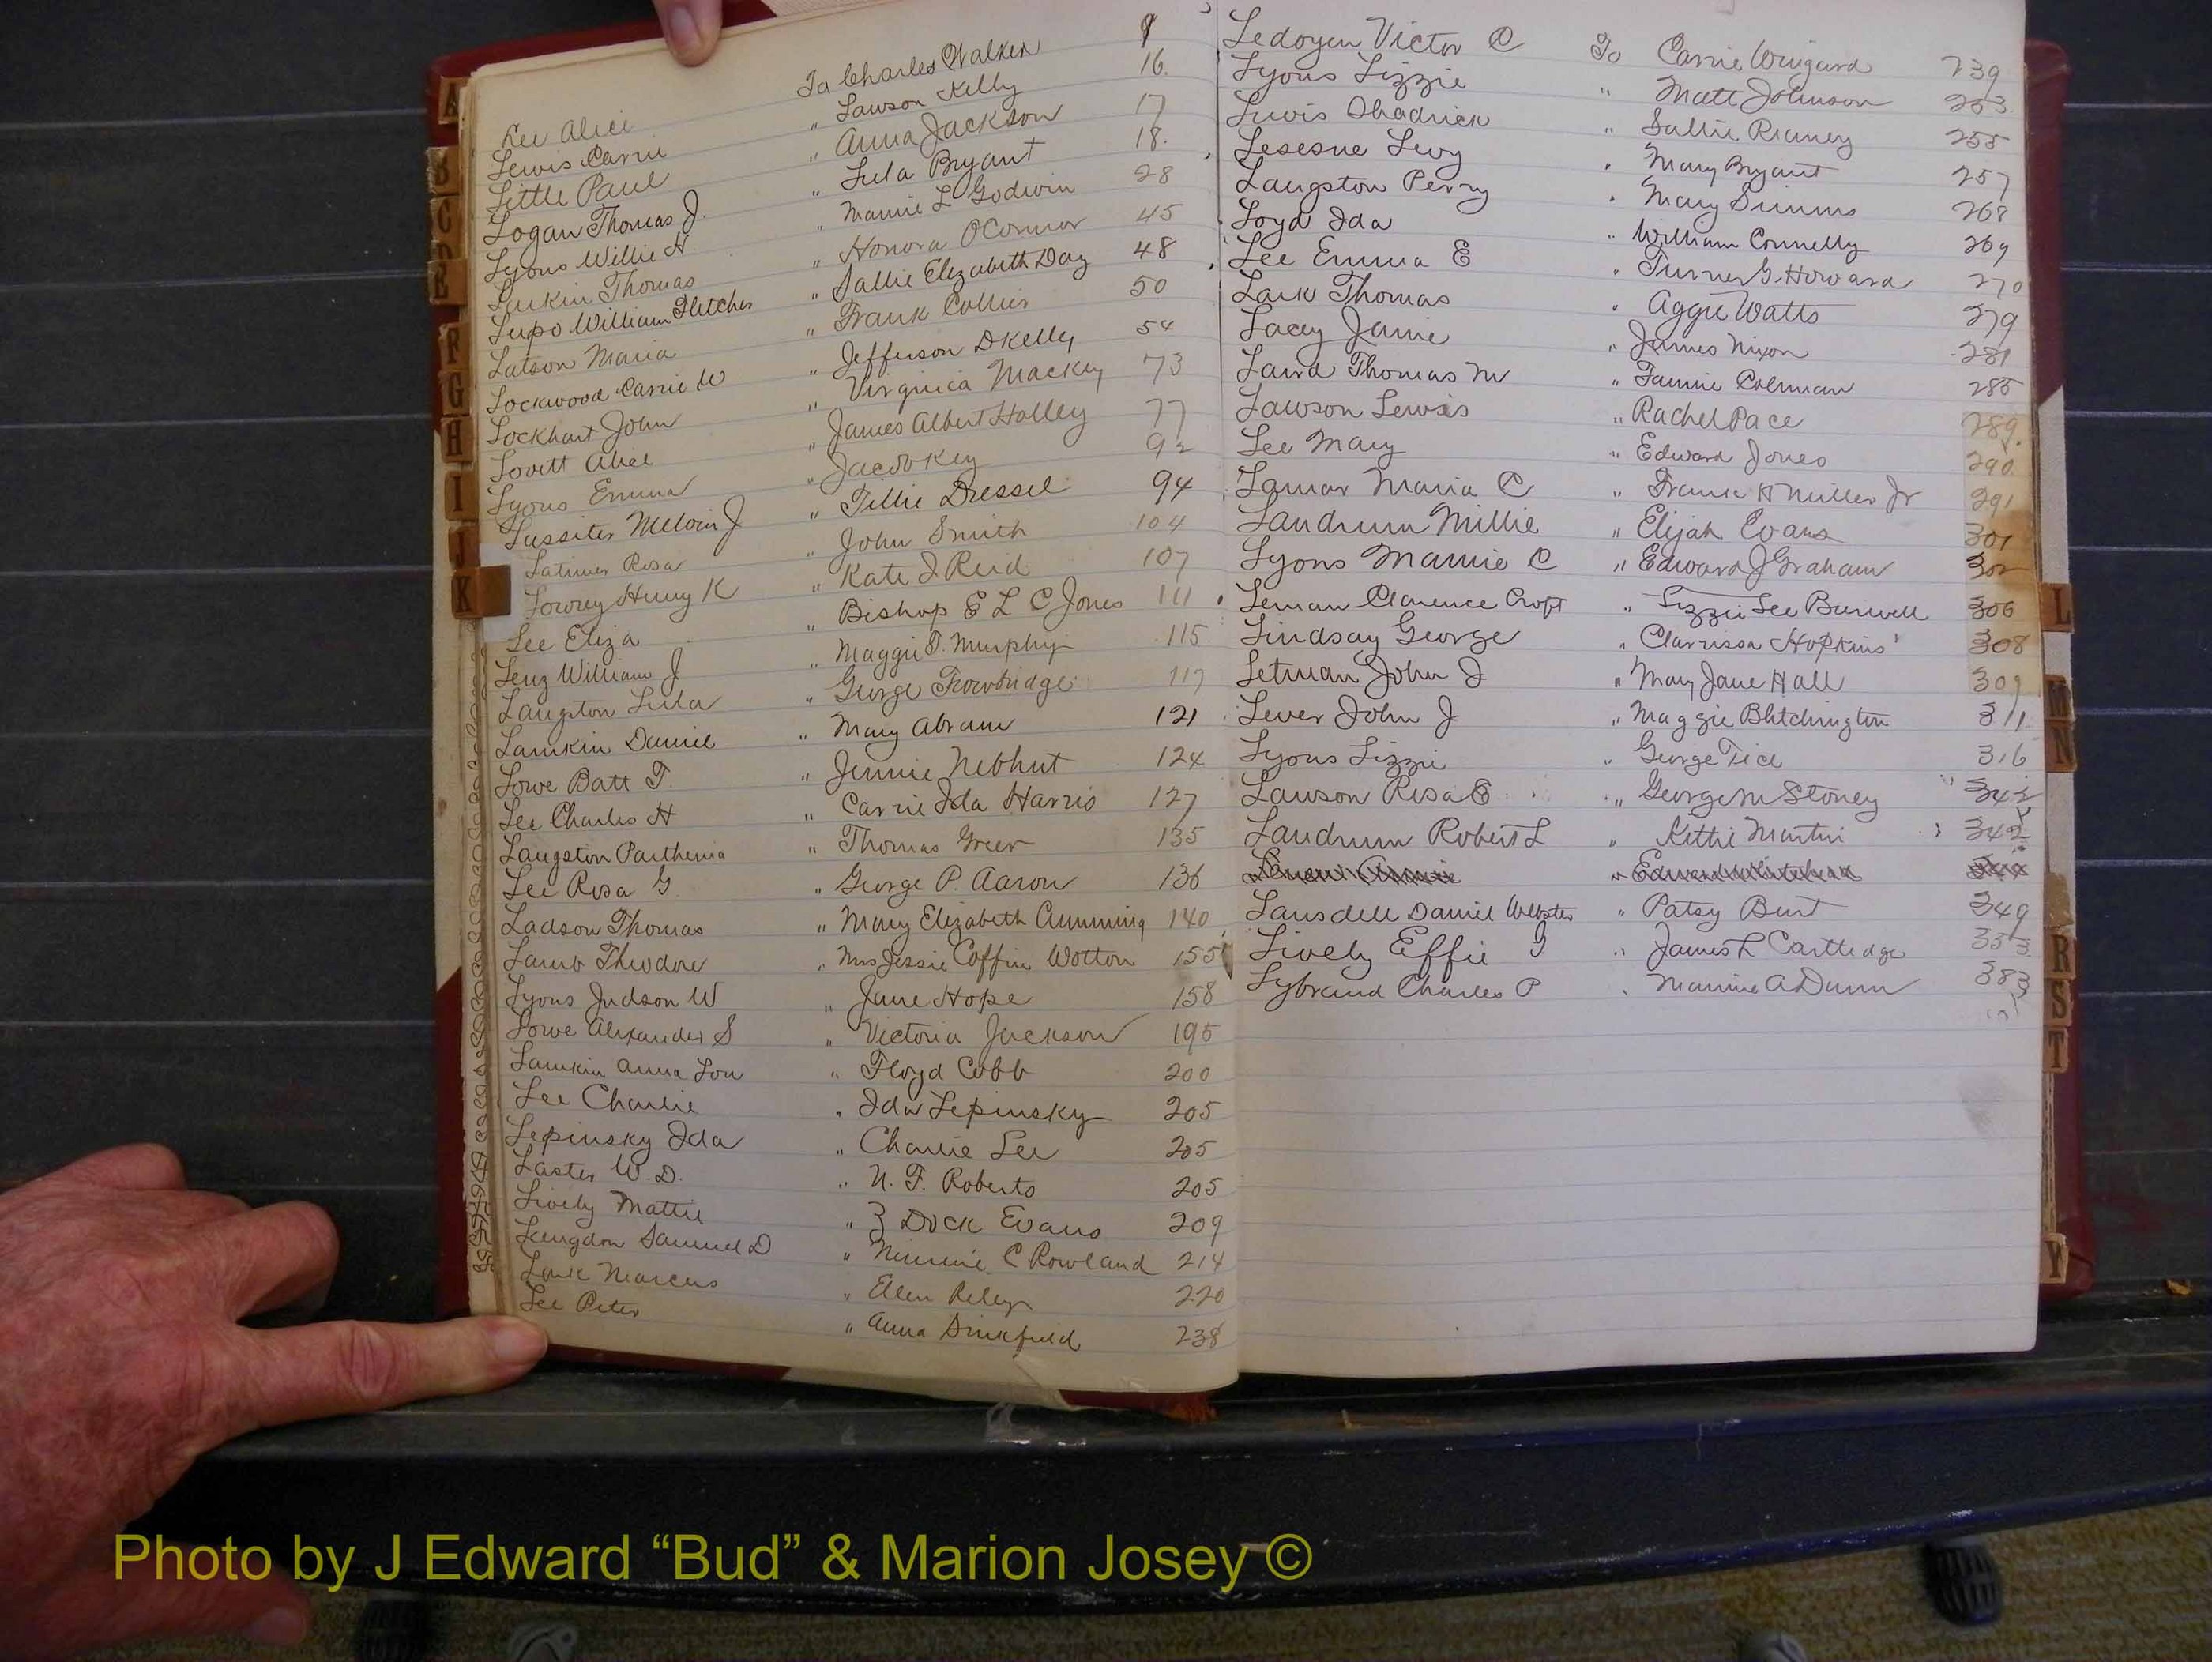 Lee Alice To Charles Walker 9
Lewis Carrie " Lawson Kelly 16
Little Paul " Anna Jackson 17
Logan Thomas J. " Lula Bryant 18.
Lyons Willie H " Mamie L Godwin 28
Larkin Thomas " Honora OConnor 45
Lupo William Fletcher " Sallie Elizabeth Day 48
Latson Maria " Frank Collier 50
Lockwood Carrie W " Jefferson D Kelly 54
Lockhart John " Virginia Mackey 73
Lovett Alice " James Albert Holley 77
Lyons Emma " Jacob Key 92
Lassiter Melvin J " Tillie Dressel 94
Latimer Rosa " John Smith 104
Lowrey Henry K " Kate I Reid 107
Lee Eliza " Bishop E L C Jones 111
Lenz William J " Maggie T. Murphy 115
Langston Lula " George Trowbridge 117
Lamkin Daniel " Mary Abram 121
Lowe Batt T. " Jennie Nebhut 124
Lee Charles H " Carrie Ida Harris 127
Langston Parthenia " Thomas Greer 135
Lee Rosa G. " George P. Aaron 136
Ladson Thomas " Mary Elizabeth Cumming 140
Lamb Theodore " Mrs Jessie Coffin Wotton 155
Lyons Judson W " Jane Hope 158
Lowe Alexander S " Victoria Jackson 195
Lamkin Anna Lou " Floyd Cobb 200
Lee Charlie " Ida Lepinsky 205
Lepinsky Ida " Charlie Lee 205
Laster W. D. " N. F. Roberts 205
Lively Mattie " Dock Evans 209
Langdon Samuel D " Minnie C Rowland 214
Lark Marcus " Ellen Riley 220
Lee Peter " Anna Sinkfield 238
Ledoyen Victor C To Carrie Wingard 239
Lyons Lizzie " Matt Johnson 253
Lewis Shadrick " Sallie Rainey 255
Lesesne Levy " Mary Bryant 257
Langston Perry " Mary Simms 268
Loyd Ida " William Connelly 269
Lee Emma E " Turner G. Howard 270
Lark Thomas " Aggie Watts 279
Lacey Janie " James Nixon 281
Laird Thomas M " Fannie Colman 285
Lawson Lewis " Rachel Pace 289.
Lee Mary " Edward Jones 290
Lamar Maria C " Frank H Miller Jr 291
Landrum Millie " Elijah Evans 301
Lyons Mamie C " Edward J Graham 302
Leman Clarence Croft " Lizzie Lee Burwell 306
Lindsay George " Clarrissa Hopkins 308
Letman John J " Mary Jane Hall 309
Lever John J " Maggie Blitchington 311
Lyons Lizzie " George Tice 316
Lawson Rosa E " George M Stoney 342
Landrum Robert L " Kittie Martin 342
Lansdell Daniel Webster " Patsy Burt 349
Lively Effie G " James L Cartledge 353
Lybrand Charles P " Mamie A Dunn 383
A
B
C
D
E
F
G
H
I
J
K
L
M
N
R
S
T
Y
Photo by J Edward “Bud” & Marion Josey ©